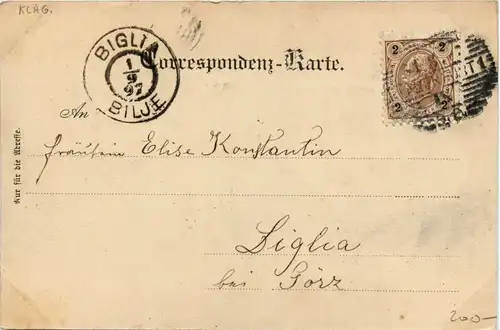 KLAG.
BIGLIA
1
9
97
BILJE
Correspondenz-Karte.
2 2
2 2
An
Fräulein Elise Konstantin
Nur für die Adresse.
Biglia
bei Görz
200-